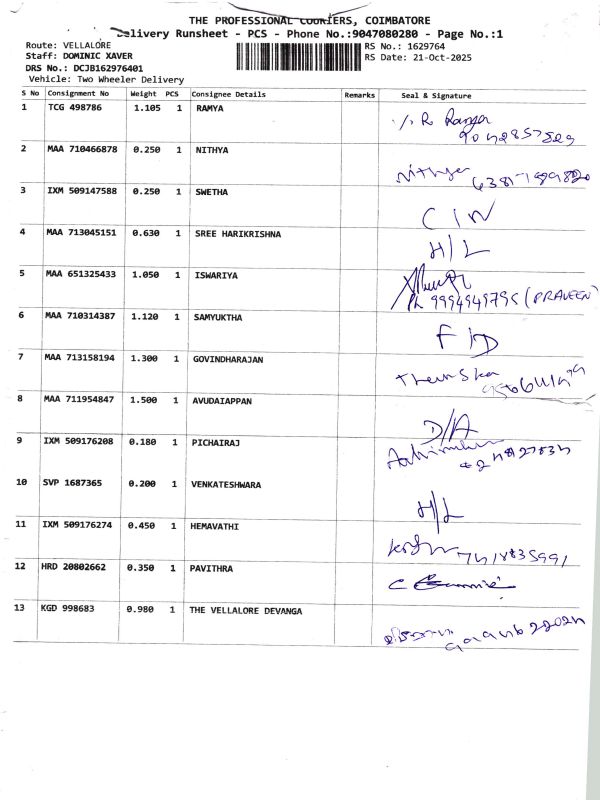 THE PROFESSIONAL COURIERS, COIMBATORE
Delivery Runsheet - PCS - Phone No.:9047080280 - Page No.:1
Route: VELLALORE
Staff: DOMINIC XAVER
DRS No.: DCJB162976401
Vehicle: Two Wheeler Delivery
RS No.: 1629764
RS Date: 21-Oct-2025
S No Consignment No Weight PCS Consignee Details Remarks Seal & Signature
1 TCG 498786 1.105 1 RAMYA
2 MAA 710466878 0.250 1 NITHYA Nithya
3 IXM 509147588 0.250 1 SWETHA C/N
4 MAA 713045151 0.630 1 SREE HARIKRISHNA H/L
5 MAA 651325433 1.050 1 ISWARIYA
Ph 9994949795 (PRAVEEN)
6 MAA 710314387 1.120 1 SAMYUKTHA
7 MAA 713158194 1.300 1 GOVINDHARAJAN
8 MAA 711954847 1.500 1 AVUDAIAPPAN D/A
9 IXM 509176208 0.180 1 PICHAIRAJ
10 SVP 1687365 0.200 1 VENKATESHWARA H/L
11 IXM 509176274 0.450 1 HEMAVATHI
12 HRD 20802662 0.350 1 PAVITHRA
13 KGD 998683 0.980 1 THE VELLALORE DEVANGA